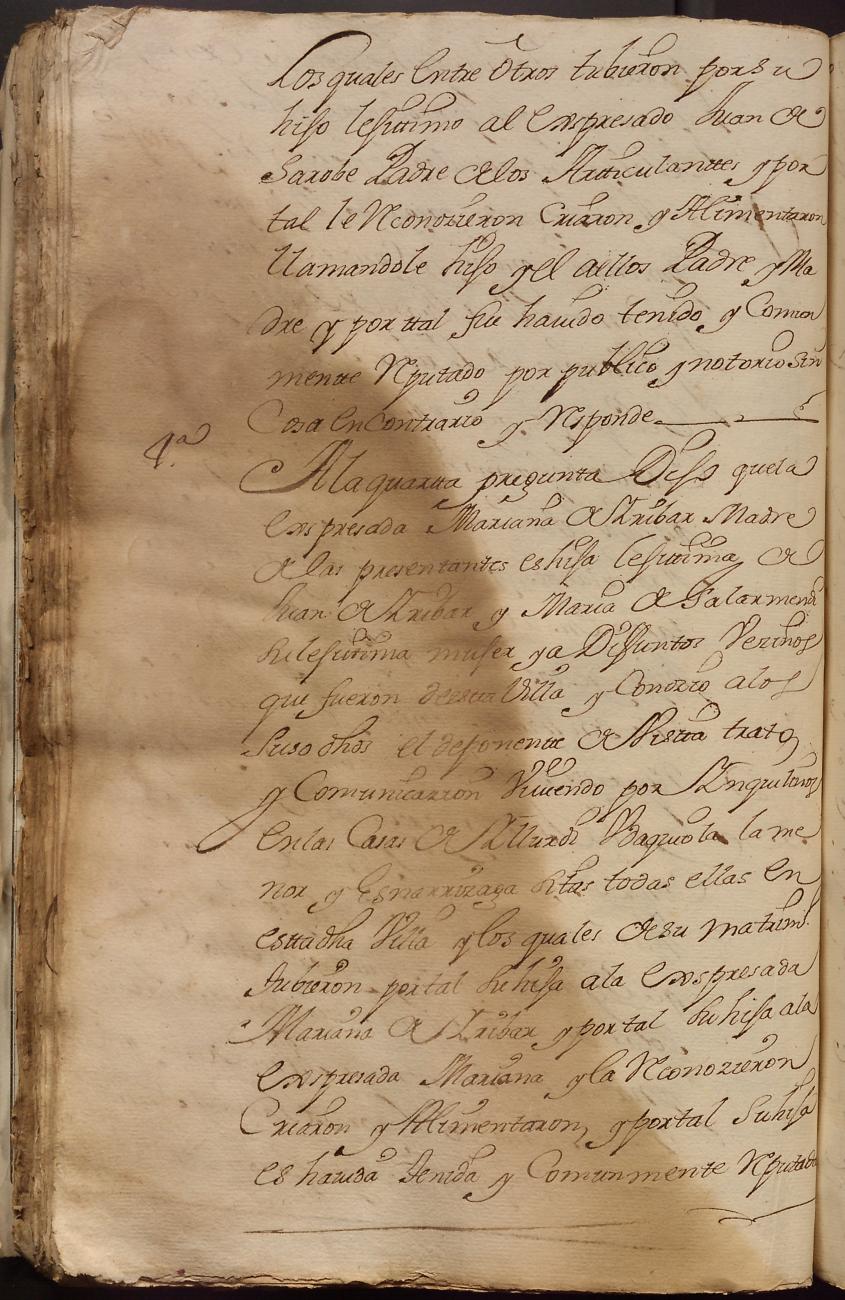 Los quales entre otros tubieron por su
hijo lejitimo al expresado Juan de
Sarobe Padre de los Articulanttes y por
tal le Reconozieron Criaron y Alimentaron
llamandole hijo y el a ellos Padre y Ma
dre y por ttal fue hauido tenido y Comun
mente Reputado por publico y notorio sin
Cosa en contrario y Responde
4.ª
A la quartta pregunta Dijo que la
expresada Mariana de Yribar Madre
de las presentantes es hija lejitima de
Juan de Yribar y Maria de Galarmendi
su lejitima mujer ya Difuntos Vezinos
que fueron de esta Villa y Conozio a los
suso dhos el deponente de Vista trato
y Comunicazion Viuiendo por Ynquilinos
en las Casas de la me
nor y todas ellas en
esta dha Villa y los quales de su matrim.º
tubieron por tal su hija a la expresada
Mariana de Yribar y por tal su hija a la
expresada Mariana y la Reconozieron
Criaron y Alimentaron y por tal su hija
es hauida tenida y Comunmente Reputada